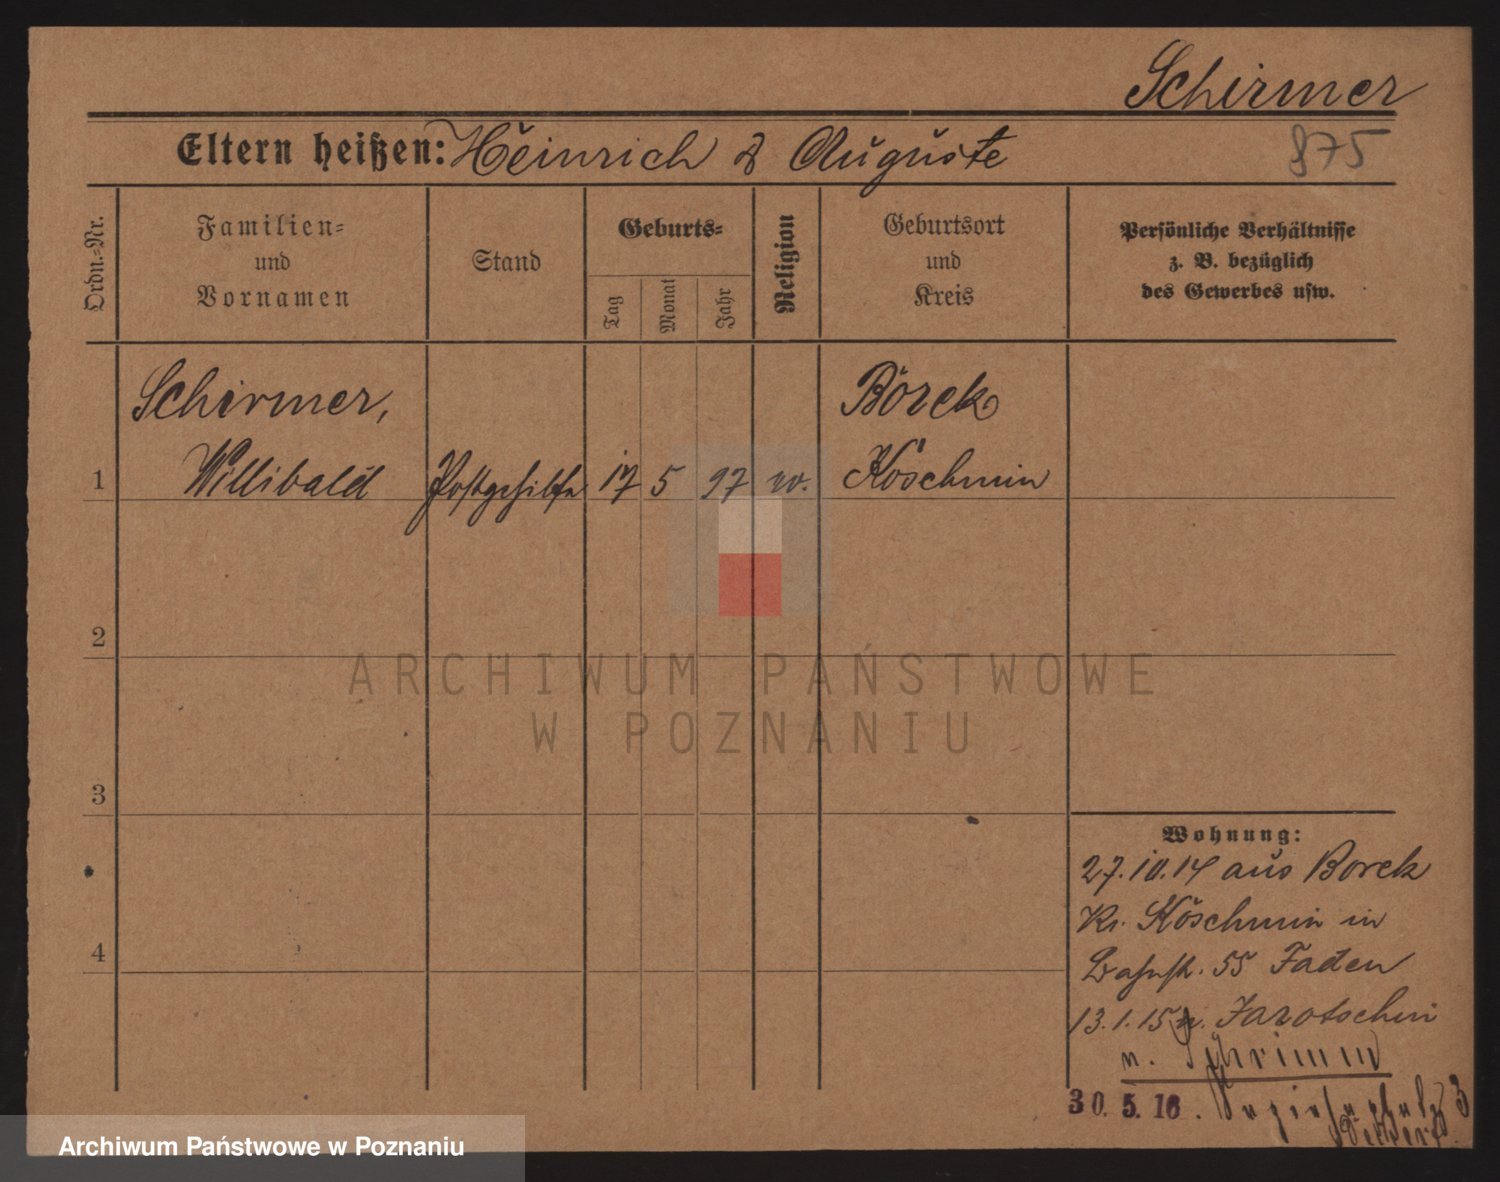 Schirmer
Eltern heißen: Heinrich & Auguste
875
Ordn.-Nr.
Familien-
und
Vornamen
Stand
Geburts-
Tag
Monat
Jahr
Religion
Geburtsort
und
Kreis
Persönliche Verhältnisse
z. B. bezüglich
des Gewerbes usw.
Schirmer,
Borek
1 Willibald Postgehilfe 17 5 97 Koschmin
2
ARCHIWUM PAŃSTWOWE
W POZNANIU
3
Wohnung:
27.10.14 aus Borek
Kr. Koschmin in
4
Bahnst. 55 Faden
13.1.15 n. Jarotschin
n. Schrimm
30.5.16.
3
Archiwum Państwowe w Poznaniu